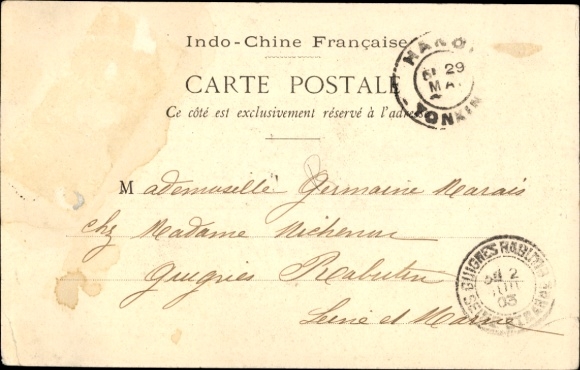 Indo-Chine Française
CARTE POSTALE
Ce côté est exclusivement réservé à l'adresse
HANOI
29
MAI
TONKIN
Mademoiselle Germaine Marais
chez Madame Michenon
Guignes Rabutin
Seine et Marne
GUIGNES-RABUTIN
2
JUIL
03
SEINE-ET-MARNE